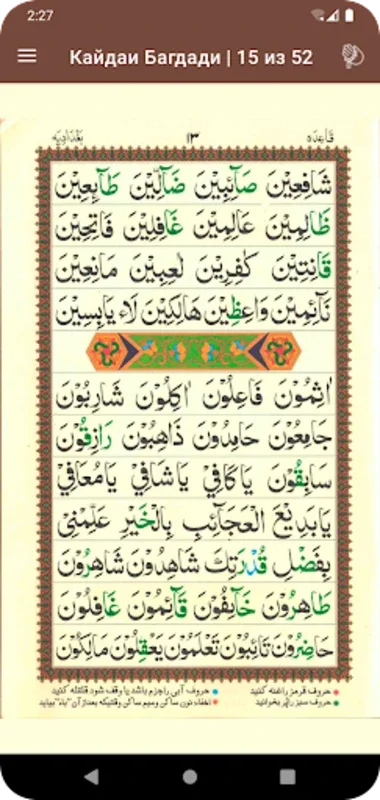 2:27
Кайдаи Багдади | 15 из 52
قاعده ١٣ بغدادیه
شَافِعِيْنَ صَآئِبِيْنَ ضَآلِّيْنَ طَآئِعِيْنَ
ظَالِمِيْنَ عَالِمِيْنَ غَافِلِيْنَ فَاتِحِيْنَ
قَانِتِيْنَ كٰفِرِيْنَ لٰعِبِيْنَ مَانِعِيْنَ
نَآئِمِيْنَ وَاعِظِيْنَ هَالِكِيْنَ لَاءِ يَابِسِيْنَ
اٰثِمُوْنَ فَاعِلُوْنَ اٰكِلُوْنَ شَارِبُوْنَ
جَامِعُوْنَ حَامِدُوْنَ ذَاهِبُوْنَ رَازِقُوْنَ
سَابِقُوْنَ يَاكَافِيْ يَاشَافِيْ يَامُعَافِيْ
يَابَدِيْعَ الْعَجَآئِبِ بِالْخَيْرِ عَلِّمْنِيْ
بِفَضْلِ قُدْرَتِكَ شَاهِدُوْنَ شَاهِرُوْنَ
طَاهِرُوْنَ خَآئِفُوْنَ قَآئِمُوْنَ غَافِلُوْنَ
حَاضِرُوْنَ تَائِبُوْنَ تَعْلَمُوْنَ يَعْقِلُوْنَ مَالِكُوْنَ
حروف قرمز را غنه کنید حروف آبی را جزم باشد یا وقف شود قلقله کنید
حروف سبز را پُر بخوانید اخفاء نون ساکن ومیم ساکن وقتیکه بعد از آن "باء" بیاید